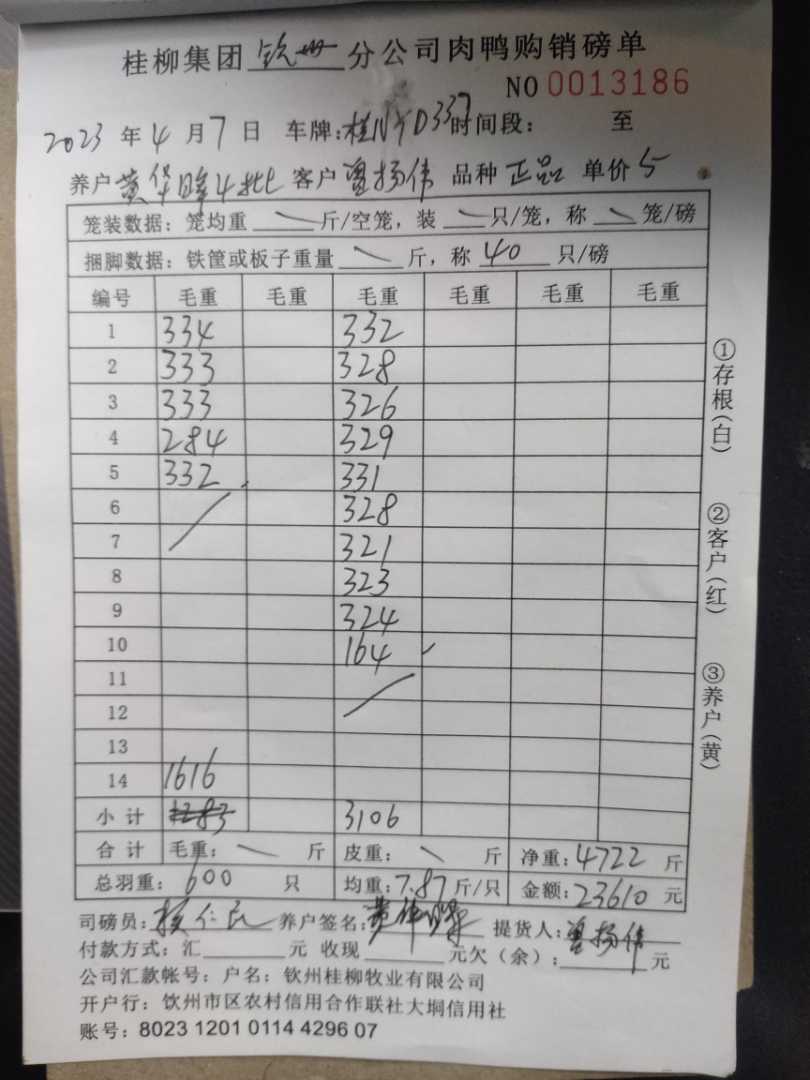 桂柳集团 钦州 分公司肉鸭购销磅单
NO 0013186
2023 年 4 月 7 日 车牌:桂NYD337 时间段: 至
养户 黄华晖4批 客户 曾扬伟 品种 正品 单价 5
笼装数据: 笼均重 \ 斤/空笼, 装 \ 只/笼, 称 \ 笼/磅
捆脚数据: 铁筐或板子重量 \ 斤, 称 40 只/磅
编号 毛重 毛重 毛重 毛重 毛重 毛重
1 334 332
2 333 328
3 333 326
4 284 329
5 332 331
6 328
7 321
8 323
9 324
10 164
11
12
13
14 1616
小计 3106
合计 毛重: \ 斤 皮重: \ 斤 净重: 4722 斤
总羽重: 600 只 均重: 7.87 斤/只 金额: 23610 元
司磅员: 仁 养户签名: 黄华晖 提货人: 曾扬伟
付款方式: 汇 元 收现 元欠(余): 元
公司汇款帐号: 户名: 钦州桂柳牧业有限公司
开户行: 饮州市区农村信用合作联社大垌信用社
账号: 8023 1201 0114 4296 07
①存根(白)
②客户(红)
③养户(黄)